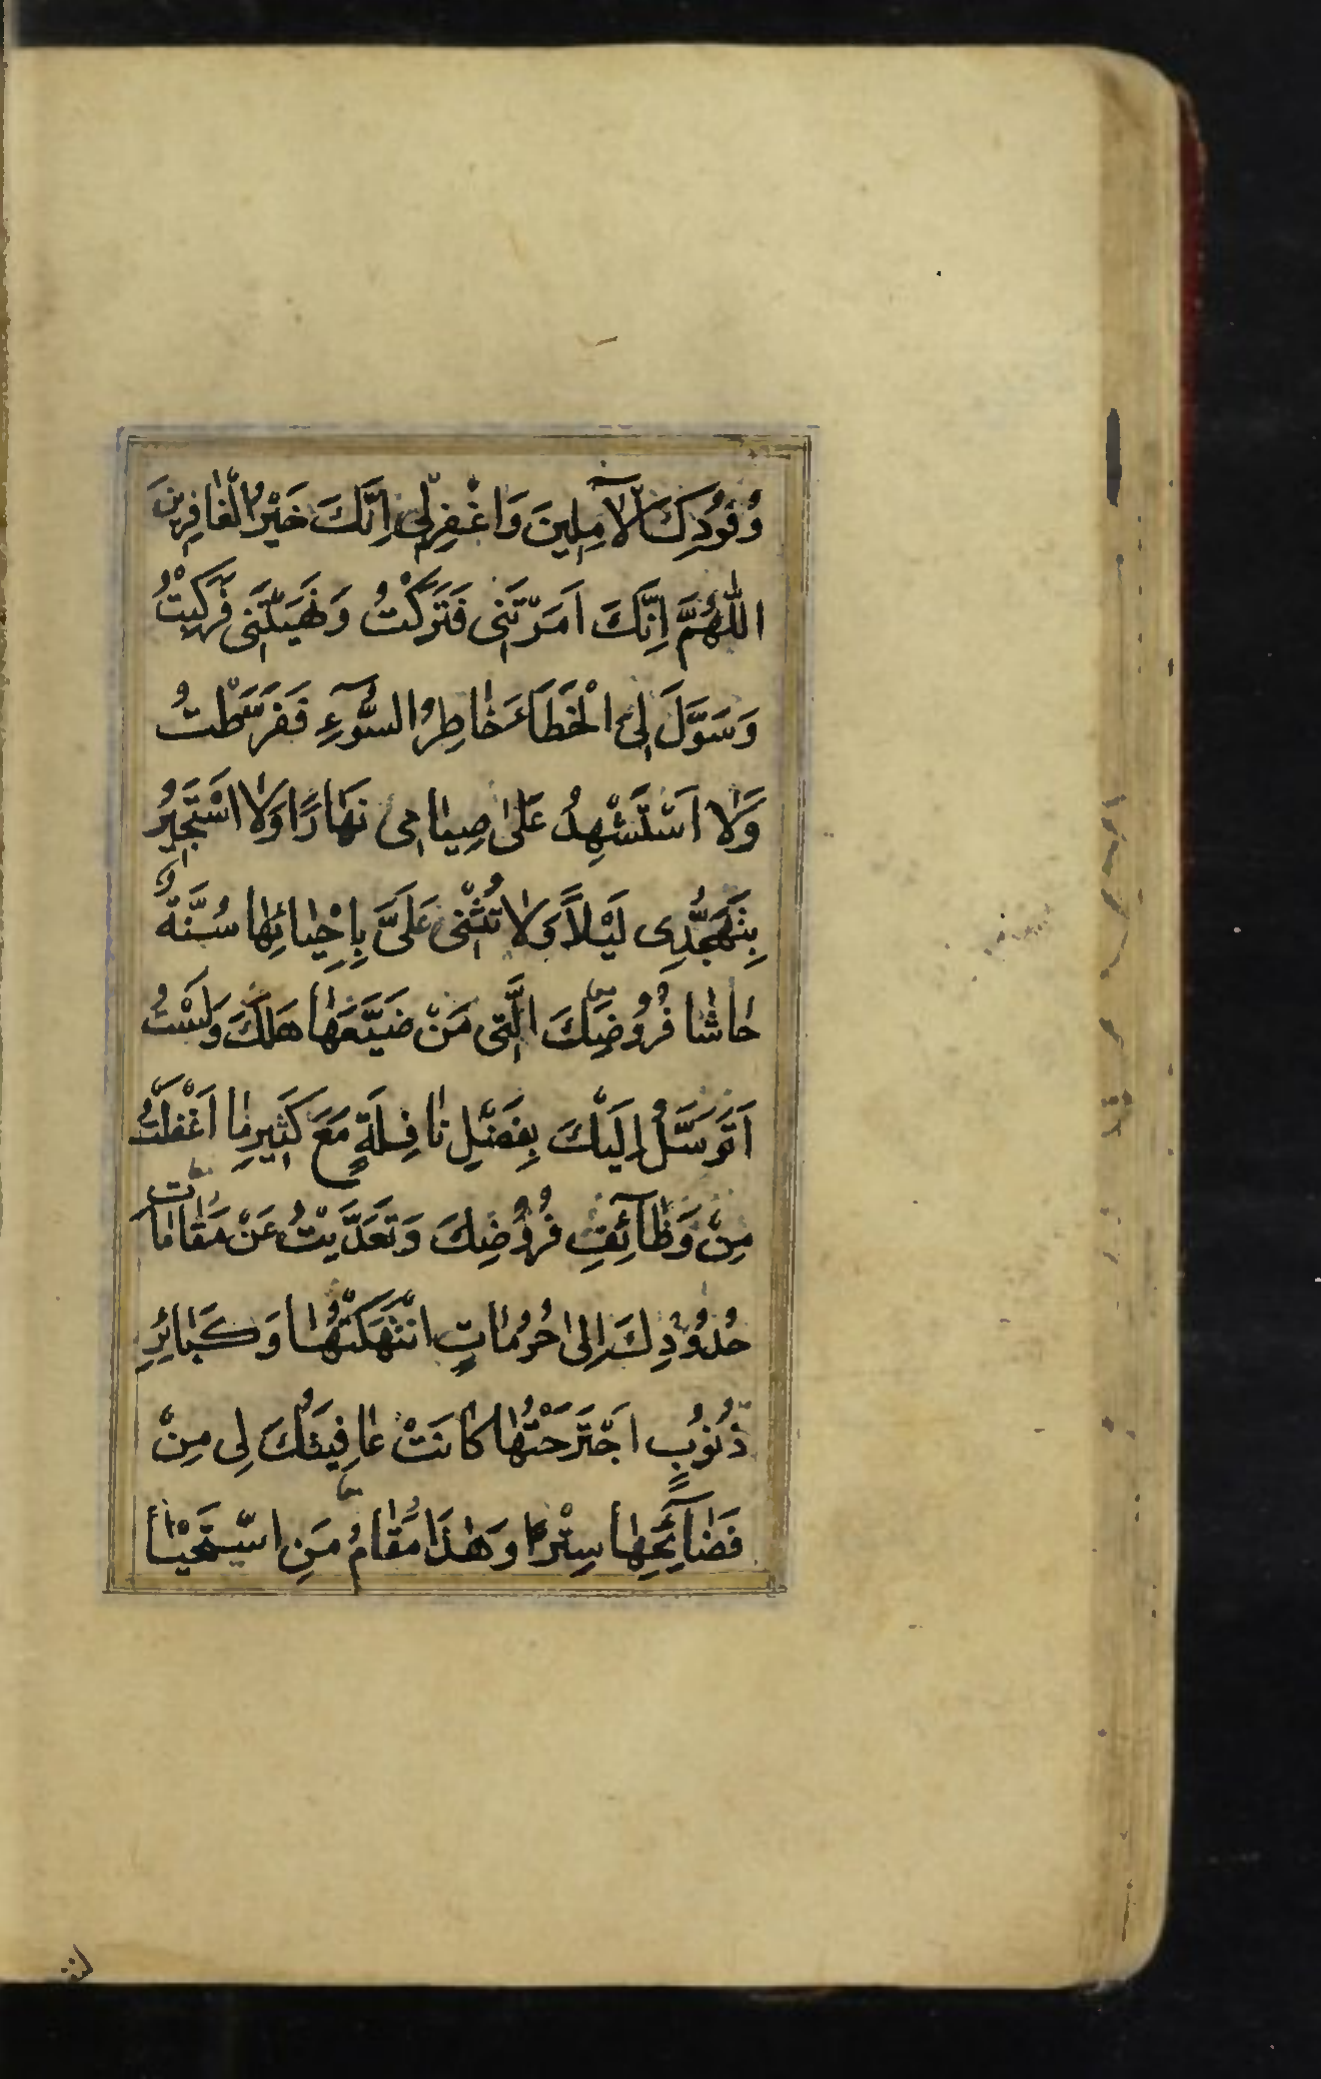 وُفُودِكَ الْآمِلِينَ وَاغْفِرْ لِي اِنَّكَ خَيْرُ الْغافِرِينَ
اللّٰهُمَّ اِنَّكَ اَمَرْتَنِي فَتَرَكْتُ وَنَهَيْتَنِي فَرَكِبْتُ
وَسَوَّلَ لِيَ الْخَطَاءَ خاطِرُ السُّوۤءِ فَفَرَّطْتُ
وَلا اَسْتَشْهِدُ عَلىٰ صِيامِي نَهارًا وَلا اَسْتَجِيرُ
بِتَهَجُّدِي لَيْلاً وَلا تُثْنِي عَلَيَّ بِاِحْيائِها سُنَّةٌ
حاشا فُرُوضِكَ الَّتِي مَنْ ضَيَّعَها هَلَكَ وَلَسْتُ
اَتَوَسَّلُ اِلَيْكَ بِفَضْلِ نافِلَةٍ مَعَ كَثِيرِ ما اَغْفَلْتُ
مِنْ وَظآئِفِ فُرُوضِكَ وَتَعَدَّيْتُ عَنْ مَقاماتِ
حُدُودِكَ اِلىٰ حُرُماتٍ انْتَهَكْتُها وَكَبائِرِ
ذُنُوبٍ اجْتَرَحْتُها كانَتْ عافِيَتُكَ لِي مِنْ
فَضآئِحِها سِتْرًا وَهٰذَا مَقامُ مَنِ اسْتَحْيا